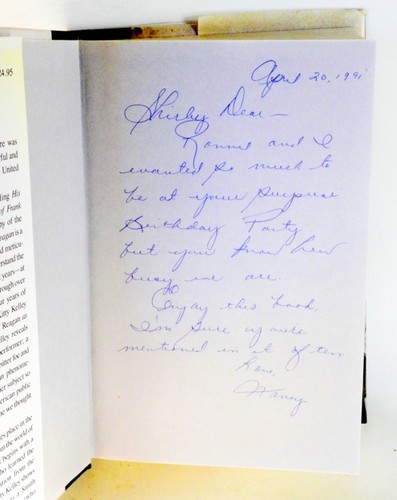 24.95
re was
ful and
United
ing His
of Frank
y of the
eagan is a
d meticu-
erstand the
years—at
rough over
ur years of
Kitty Kelley
Reagan as
elley reveals
performer; a
bitter foe and
an phenome-
er subject so
merican public
e we thought
es place in the
m the world of
begins with a
ho learned the
ation from the
y Kelley shows
a Smith
who
April 20, 1991
Shirley Dear —
Ronnie and I
wanted so much to
be at your surprise
Birthday Party
but you know how
busy we are.
So
Enjoy this book,
I'm sure you're
mentioned in it often
Love,
Nancy